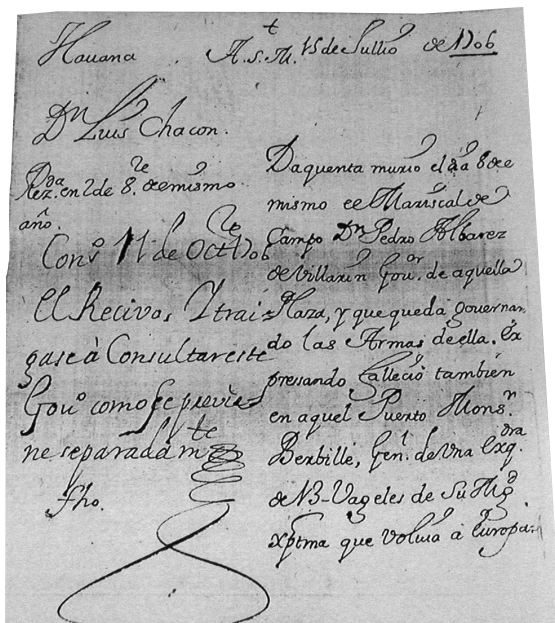 Havana
A. S. M.t 15 de Jullio de 1706
Dn Luis Chacon.
Rda en 2 de 8.re de mismo
año.
Conso 11 de Octre 1706
El Recivo, Y trai-
gase à Consultar este
Govo como se previe-
ne separadamte
fho.
Da quenta murio el dia 8 de
mismo ee Mariscal de
Campo Dn Pedro Albarez
de Villarin Gouor. de aquella
Plaza, y que queda governan-
do las Armas de ella. Ex
presando fallecio tambien
en aquel Puerto Monsn.
Berbille, Genl. de vna Exqdra
de Vageles de Su Magd
xptma que volvia a Europa.